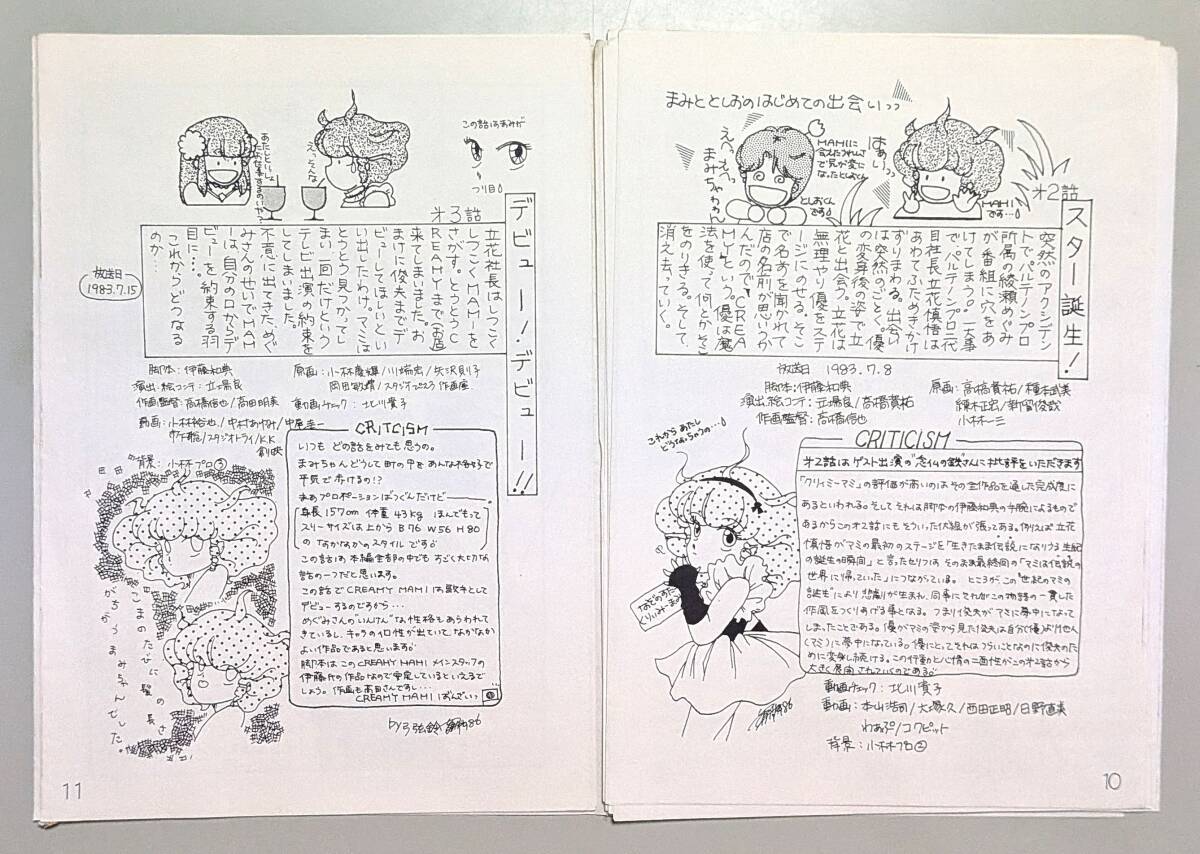 まみととしおのはじめての出会いっっ
はぁいっっ
MAMIに
会えたうれしさ
で気が変に
なったとしおくん
えへっえへっ
まみちゃわぁん
としおくん
です
MAMI
です…
才2話
スター誕生!
突然のアクシデン
トでパルテノンプロ
所属の綾瀬めぐみ
が番組に穴をあ
けてしまう。一大事
でパルテノンプロ二代
目社長立花慎悟は
あわてふためきかけ
ずりまわる。出会い
は突然のごとく。優
の変身後の姿で立
花と出会う。立花は
無理やり優をステ
ージにのせる。そこ
で名前を聞かれて
店の名前が思いつか
んだので♥CREA
MY♥という。優は魔
法を使って何とかそこ
をのりきる。そして、
消え去っていく。
放送日 1983.7.8
脚本:伊藤和典
演出・絵コンテ:立場良/高橋資祐
作画監督:高橋信也
原画:高橋資祐/種本武美
糸東木正宏/新留俊哉
小林一三
これから あたし
どうなっちゃうの…
なぞのすたぁ
くりぃみーまみ
CRITICISM
才2話はゲスト出演の"念仏の鉄"さんに批評をいただきます
「クリィミーマミ」の評価が高いのはその全作品を通した完成度に
あるといわれる。そしてそれは脚本の伊藤和典の手腕によるもので
あるからこの才2話にもそういった伏線が張ってある。例えば立花
慎悟がマミの最初のステージを「生きたまま伝説になりうる生紀
の誕生の瞬間」と言ったセリフは そのまま最終回の「マミは伝説の
世界に帰っていった」につながっている。 ところがこの"世紀のマミの
誕生"により悲劇が生まれ、同事にそれがこの物語の一貫した
作風をつくりあげる事となる。つまり俊夫がマミに夢中になって
しまったことである。優がマミの姿から見た俊夫は自分(優)より他人
(マミ)に夢中になっている。優にとってそれはつらいことなのに俊夫のた
めに変身し続ける。この行動と心情の二面性がこの才2話から
大きく展開されていくのである。
動画チェック:北川貴子
動画:本山浩司/大塚久/西田正昭/日野直美
わぁぷ/コクピット
背景:小林プロ
10
この話はまみが
つり目
あたしといっしょに
え…そんな
才3話
デビュー!デビュー!!
立花社長はしつこ
くしつこくMAMIを
さがす。とうとうC
REAMYまで(お店)
来てしまいました。お
まけに俊夫までデ
ビューしてほしいとい
い出したわけ。マミは
とうとう見つかってし
まい一回だけという
テレビ出演の約束を
してしまいました。
不意に出てきためぐ
みさんのせいでMAM
Iは自分の口からデ
ビューを約束する羽
目に…。
これからどうなる
のか…
放送日
1983.7.15
脚本:伊藤和典
演出・絵コンテ:立場良
作画監督:高橋信也/高田明美
原画:小林慶輝/川端宏/矢沢則子
岡田敏靖/スタジオぴえろ作画室
動画チェック:北川貴子
動画:小林裕也/中村あゆみ/中尾圭一
竹下裕/スタジオトライ/K.K.
創映
背景:小林プロ
CRITCISM
いつも どの話をみても思うの。
まみちゃんどうして町の中をあんな格好で
平気で歩けるの!?
まあプロポーションばつぐんだけど
身長157cm 体重43kg ほんでもって
スリーサイズは上からB76 W56 H80
の なかなかのスタイルです
この話は本編全部の中でも すごく大切な
話の一つだと思います。
この話でCREAMY MAMIは歌手として
デビューするのですから…
めぐみさんの"いんけん"な性格もあらわれて
きているし、キャラのイロ性が出ていて、なかなか
よい作品であると思います
脚本はこのCREAMY MAMI メインスタッフの
伊藤氏の作品なので安定しているといえるで
しょう。作画も高田さんですし…
CREAMY MAMI ばんざいっ
by弓弦鈴
こまのたびに髪の長さ
がちがうまみちゃんでした。
11